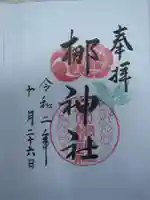 奉拝
梛神社
令和二年
十月二十六日